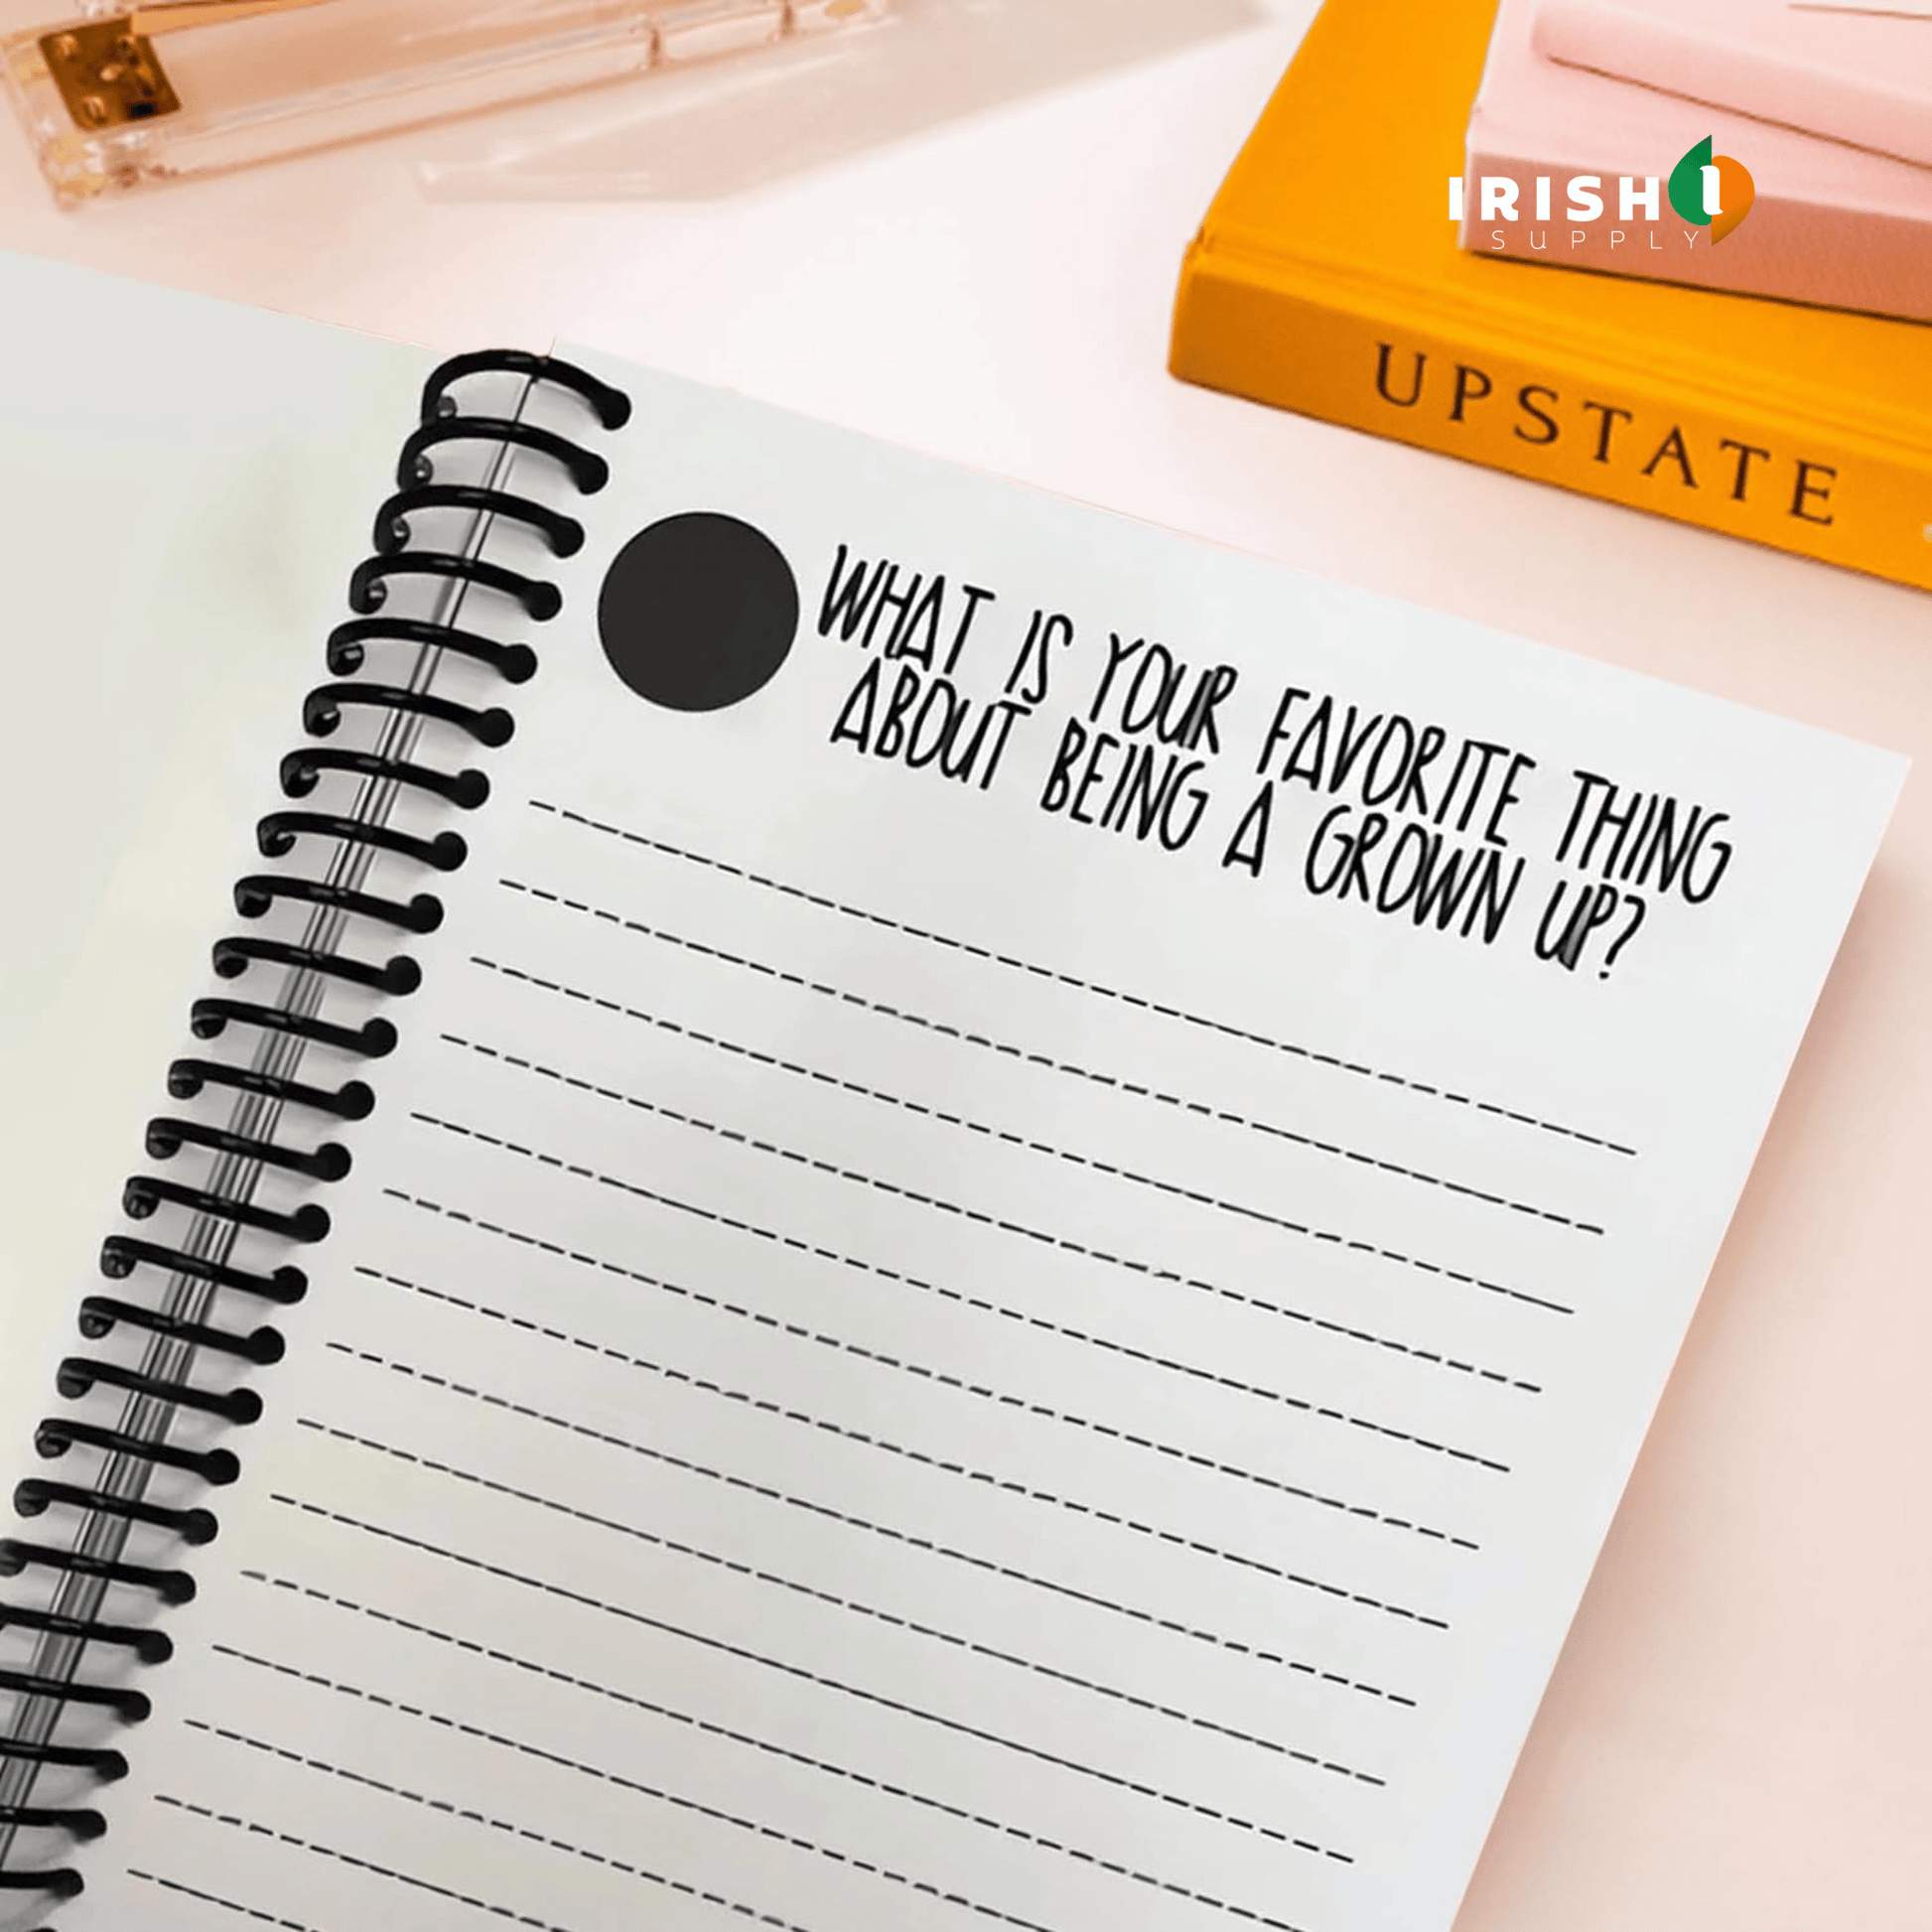 IRISH 1
SUPPLY
UPSTATE
WHAT IS YOUR FAVORITE THING
ABOUT BEING A GROWN UP?